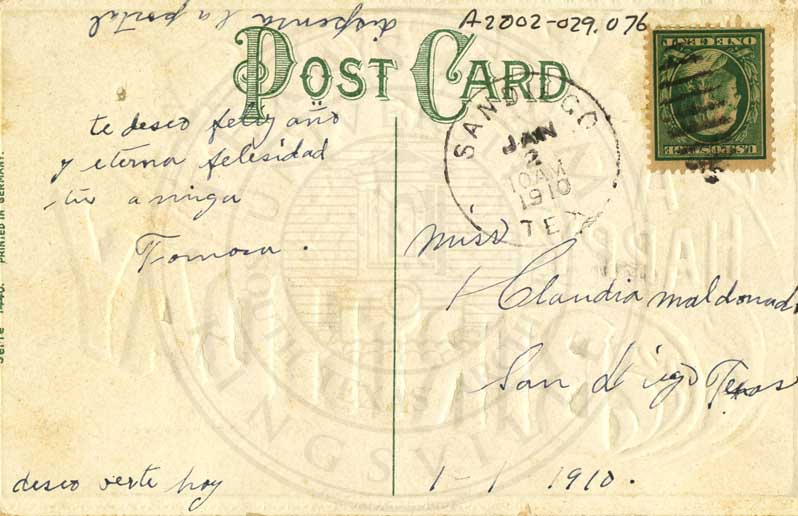 dispensa la postal
A2002-029.076
POST CARD
te deseo feliz año
y eterna felesidad
tu amiga
Tomasa.
deseo verte hoy
SAN DIEGO
JAN
2
10 AM
1910
TEX
U.S. POSTAGE
ONE CENT
Miss
Claudia Maldonado
San diego Texas
1-1 1910.
PRINTED IN GERMANY.
Serie
KINGSVILLE
HAPPY